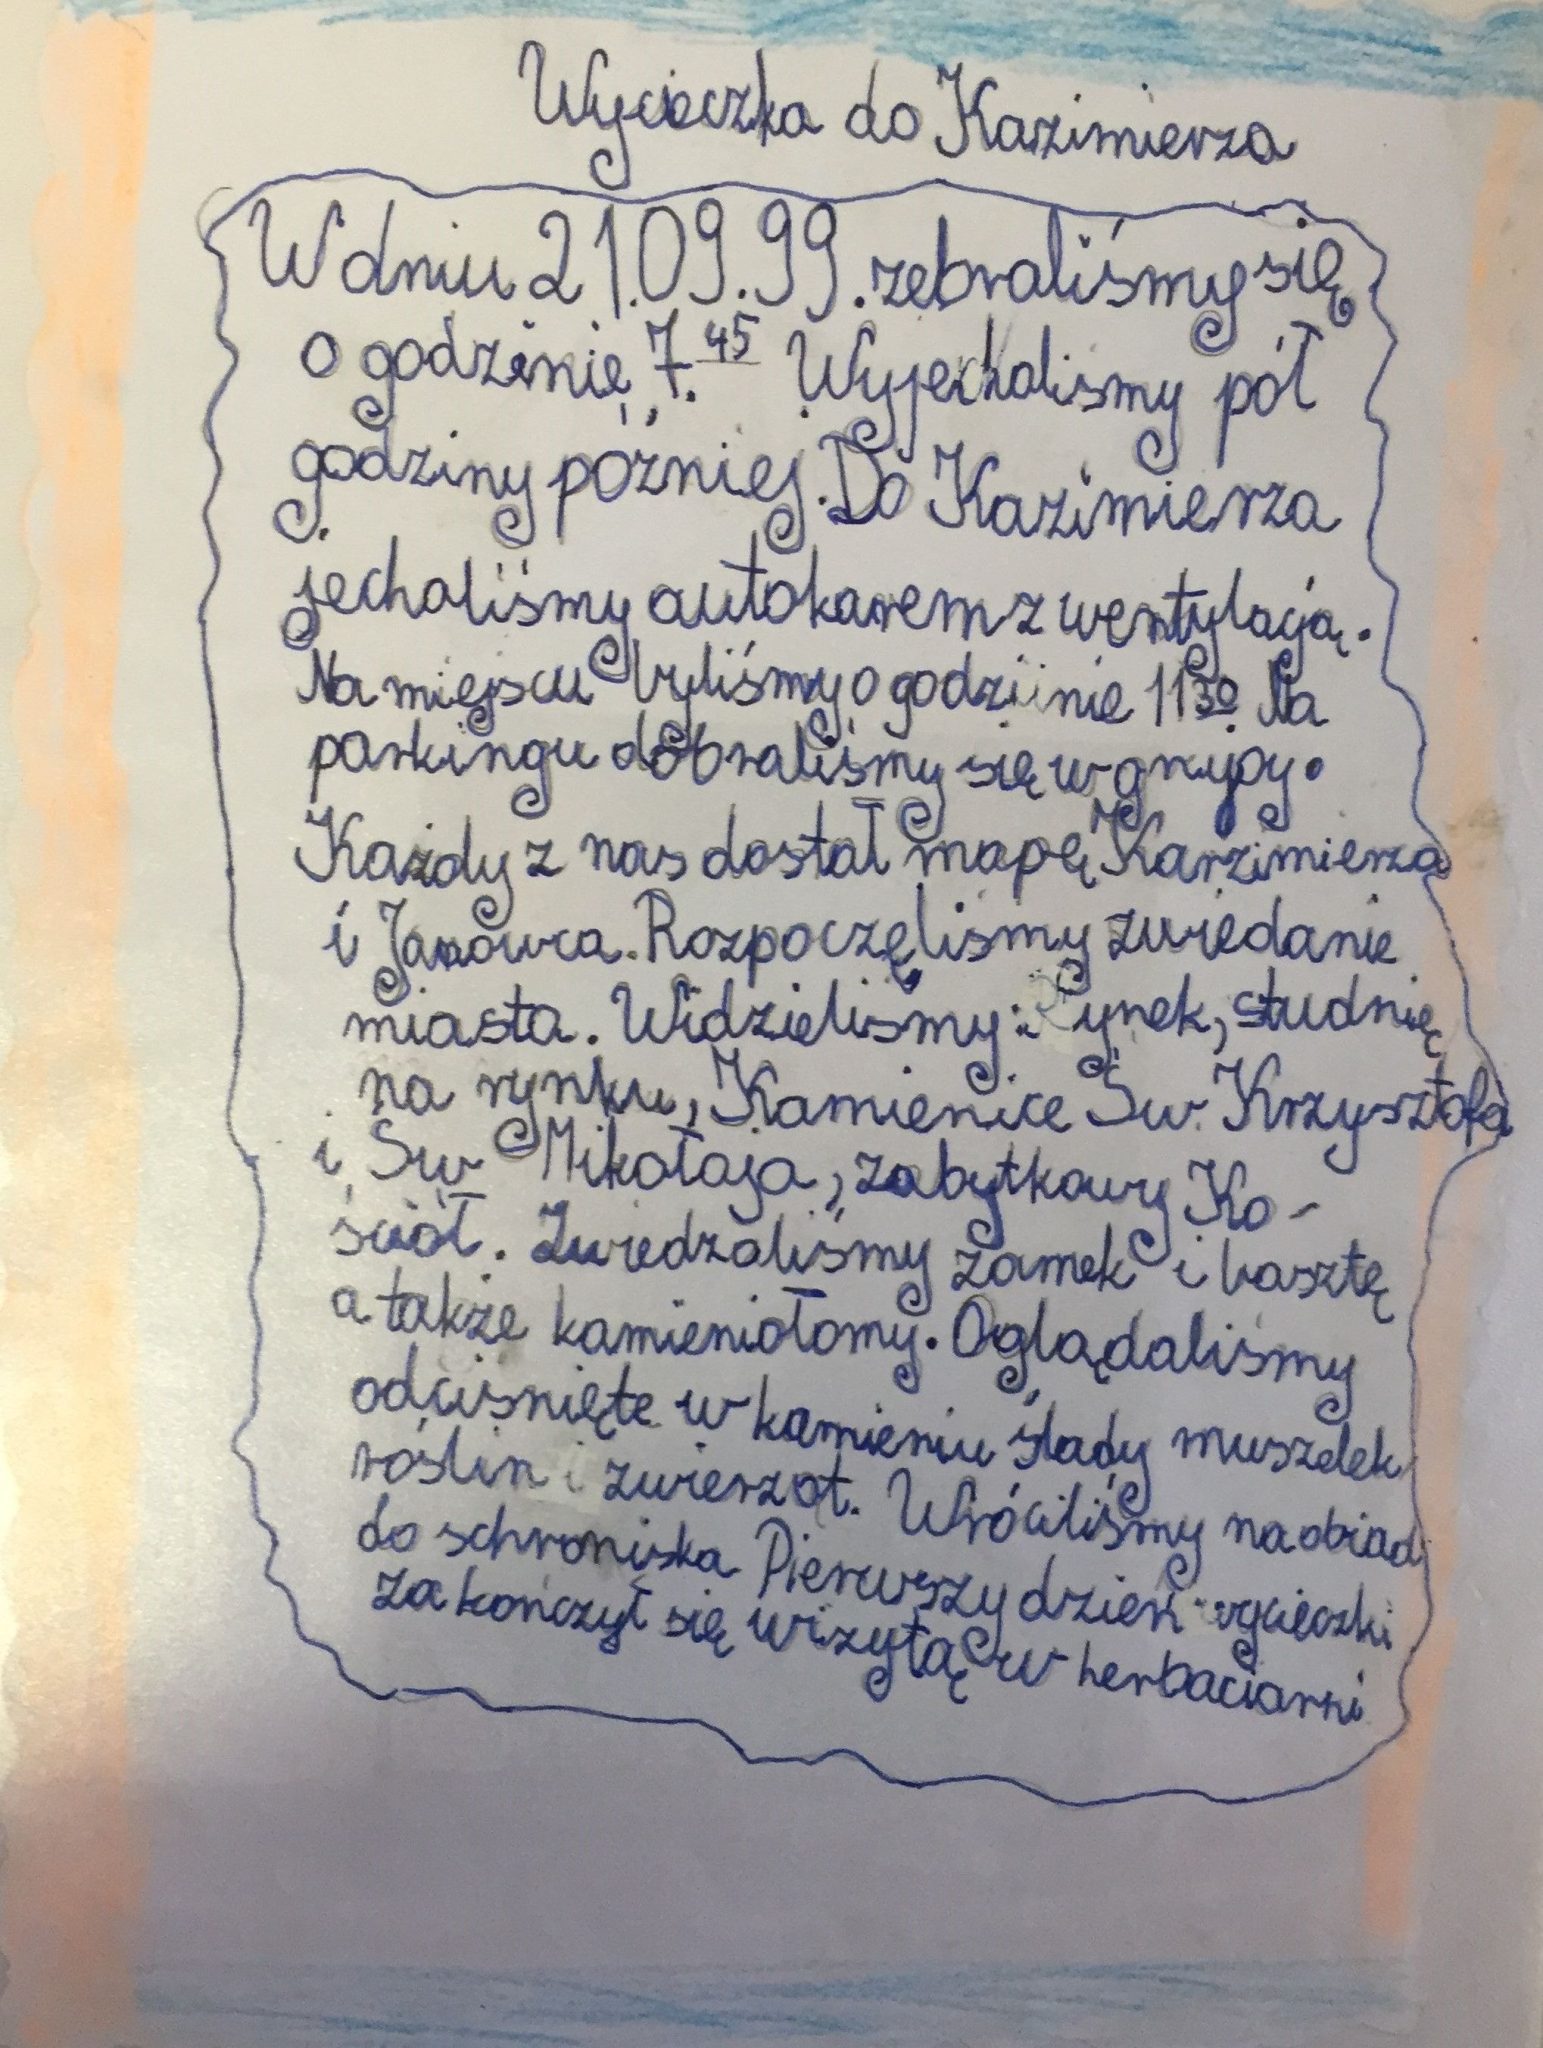 Wycieczka do Kazimierza
W dniu 21.09.99. zebraliśmy się
o godzinie 7.45 Wyjechaliśmy pół
godziny później. Do Kazimierza
jechaliśmy autokarem z wentylacją.
Na miejscu byliśmy o godziinie 11 30 Na
parkingu dobraliśmy się w grupy.
Każdy z nas dostał mapę Karzimierza
i Janowca. Rozpoczęliśmy zwiedanie
miasta. Widzieliśmy: Rynek, studnię
na rynku, Kamienice Św. Krzysztofa
i Św Mikołaja, zabytkowy Ko-
śćiół. Zwiedzaliśmy zamek i basztę
a także kamieniołomy. Oglądaliśmy
odciśnięte w kamieniu ślady muszelek
roślin i zwierzat. Wróciliśmy na obiad
do schroniska Pierwszy dzień wycieczki
zakończył się wizytą w herbaciarni